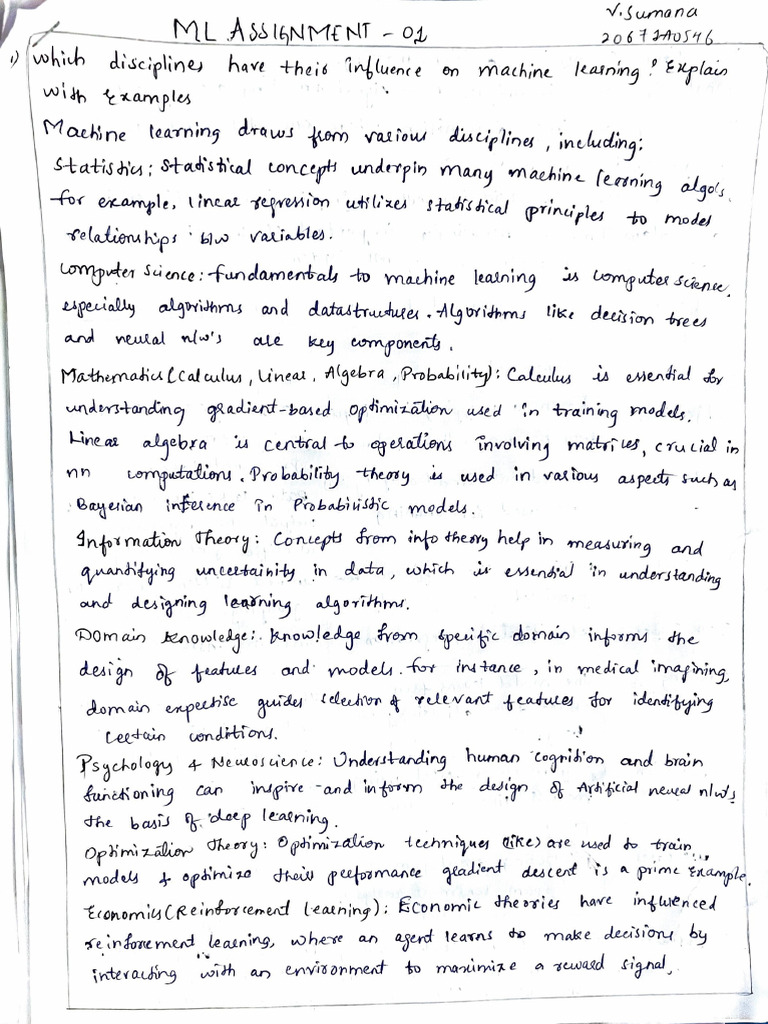 ML ASSIGNMENT - 01
V. Sumana
20672A0546
1) which disciplines have their influence on machine learning? Explain
with Examples
Machine learning draws from various disciplines, including:
Statistics: Statistical concepts underpin many machine learning algo's.
for example, linear regression utilizes statistical principles to model
relationships b/w variables.
Computer Science: fundamentals to machine learning is computer science,
especially algorithms and datastructures. Algorithms like decision trees
and neural n/w's are key components.
Mathematics (Calculus, Linear, Algebra, Probability): Calculus is essential for
understanding gradient-based optimization used in training models.
Linear algebra is central to operations involving matrices, crucial in
nn computations. Probability theory is used in various aspects such as
Bayesian inference in Probabilistic models.
Information Theory: Concepts from info theory help in measuring and
quantifying uncertainity in data, which is essential in understanding
and designing learning algorithms.
Domain Knowledge: Knowledge from specific domain informs the
design of features and models. for instance, in medical imagining,
domain expertise guides selection & relevant features for identifying
certain conditions.
Psychology & Neuroscience: Understanding human cognition and brain
functioning can inspire and inform the design of Artificial neural n/w's
the basis of deep learning.
Optimization Theory: Optimization techniques (like) are used to train
models & optimize their performance gradient descent is a prime Example.
Economics (Reinforcement learning): Economic theories have influenced
reinforement learning, where an agent learns to make decisions by
interacting with an environment to maximize a reward signal,